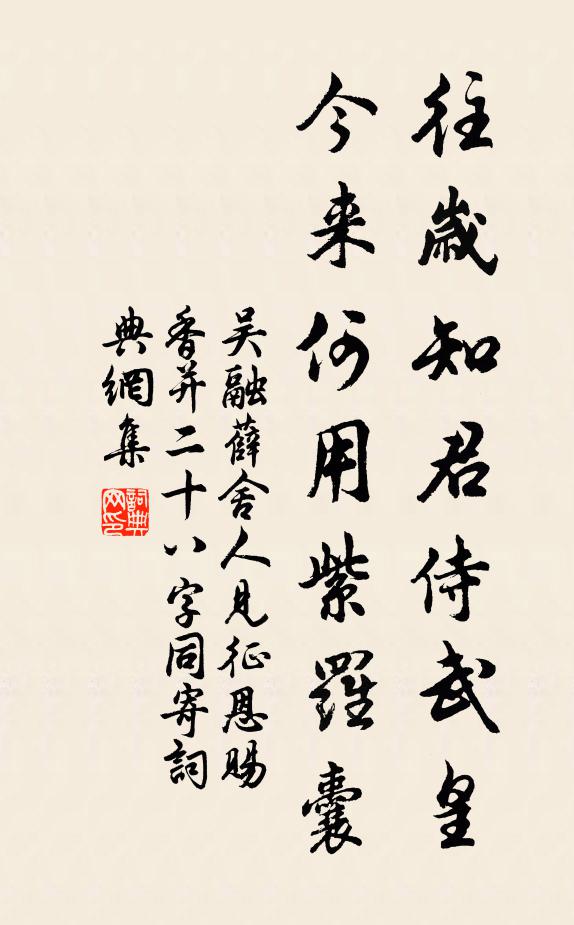 往歲知君侍武皇
今来何用紫羅囊
吴融薛舍人見征恩賜
香并二十八字同寄詞
典網集
詞典
网印